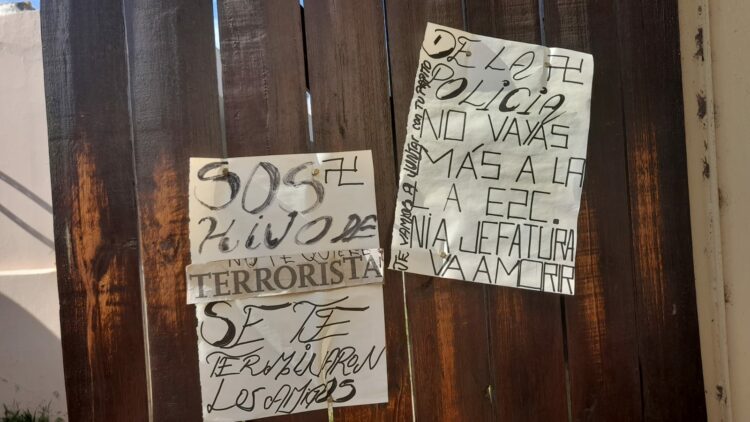 SOS 卐
HIJO DE
NO TE QUIERE
TERRORISTA
SE TE
TERMINARON
LOS AMIGOS
DE LA 卐
POLICIA
NO VAYAS
MÁS A LA
LA ESC.
NI A JEFATURA
VA A MORIR
TE VAMOS A JUNTAR CON TU PAPITO